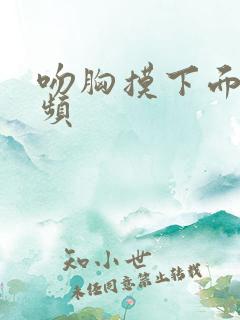 吻胸摸下而
频
知小世
未经同意禁止转载